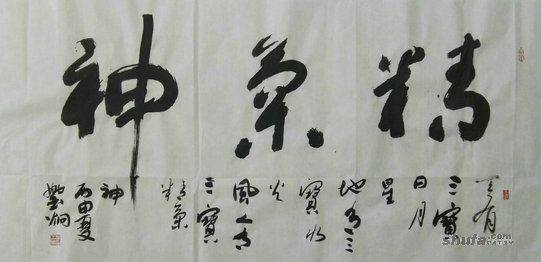 精氣神
天有
三寶
日月
星
地有三
寶水
火
風人有
三寶
精氣
神
丙申夏
shufa.com